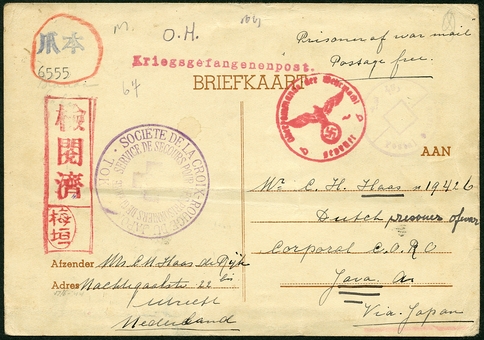 爪本
6555
M.
O.H.
64
Prisoner of war mail
Postage free.
Kriegsgefangenenpost.
BRIEFKAART
Oberkommando der Wehrmacht
geprüft
SOCIETE DE LA CROIX-ROUGE DU JAPON
SERVICE DE SECOURS
検閲済
梅垣
AAN
Mr C. H. Haas n 19426
Dutch prisoner of war
Corporal C.O.R.O
Java. A.
Via. Japan
Afzender Mrs. C.H. Haas de Rijk
Adres Nachtegaalstr 22 bis
Utrecht
Nederland